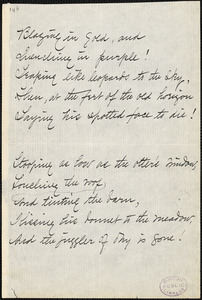 Blazing in Gold, and
Quenching in purple!
Leaping like leopards to the sky,
Then, at the feet of the old horizon
Laying his spotted face to die!
Stooping as low as the otter's window,
Touching the roof,
And tinting the barn,
Kissing his bonnet to the meadow,
And the juggler of day is gone.